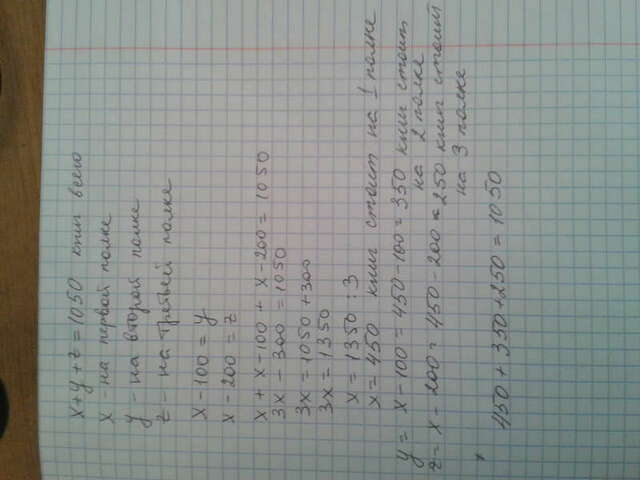 x+y+z=1050 книг всего
x - на первой полке
y - на второй полке
z - на третьей полке
x-100=y
x-200=z
x+x-100+x-200=1050
3x-300=1050
3x=1050+300
3x=1350
x=1350:3
x=450 книг стоит на 1 полке
y= x-100=450-100=350 книг стоит
на 2 полке
z= x-200=450-200=250 книг стоит
на 3 полке
450+350+250=1050